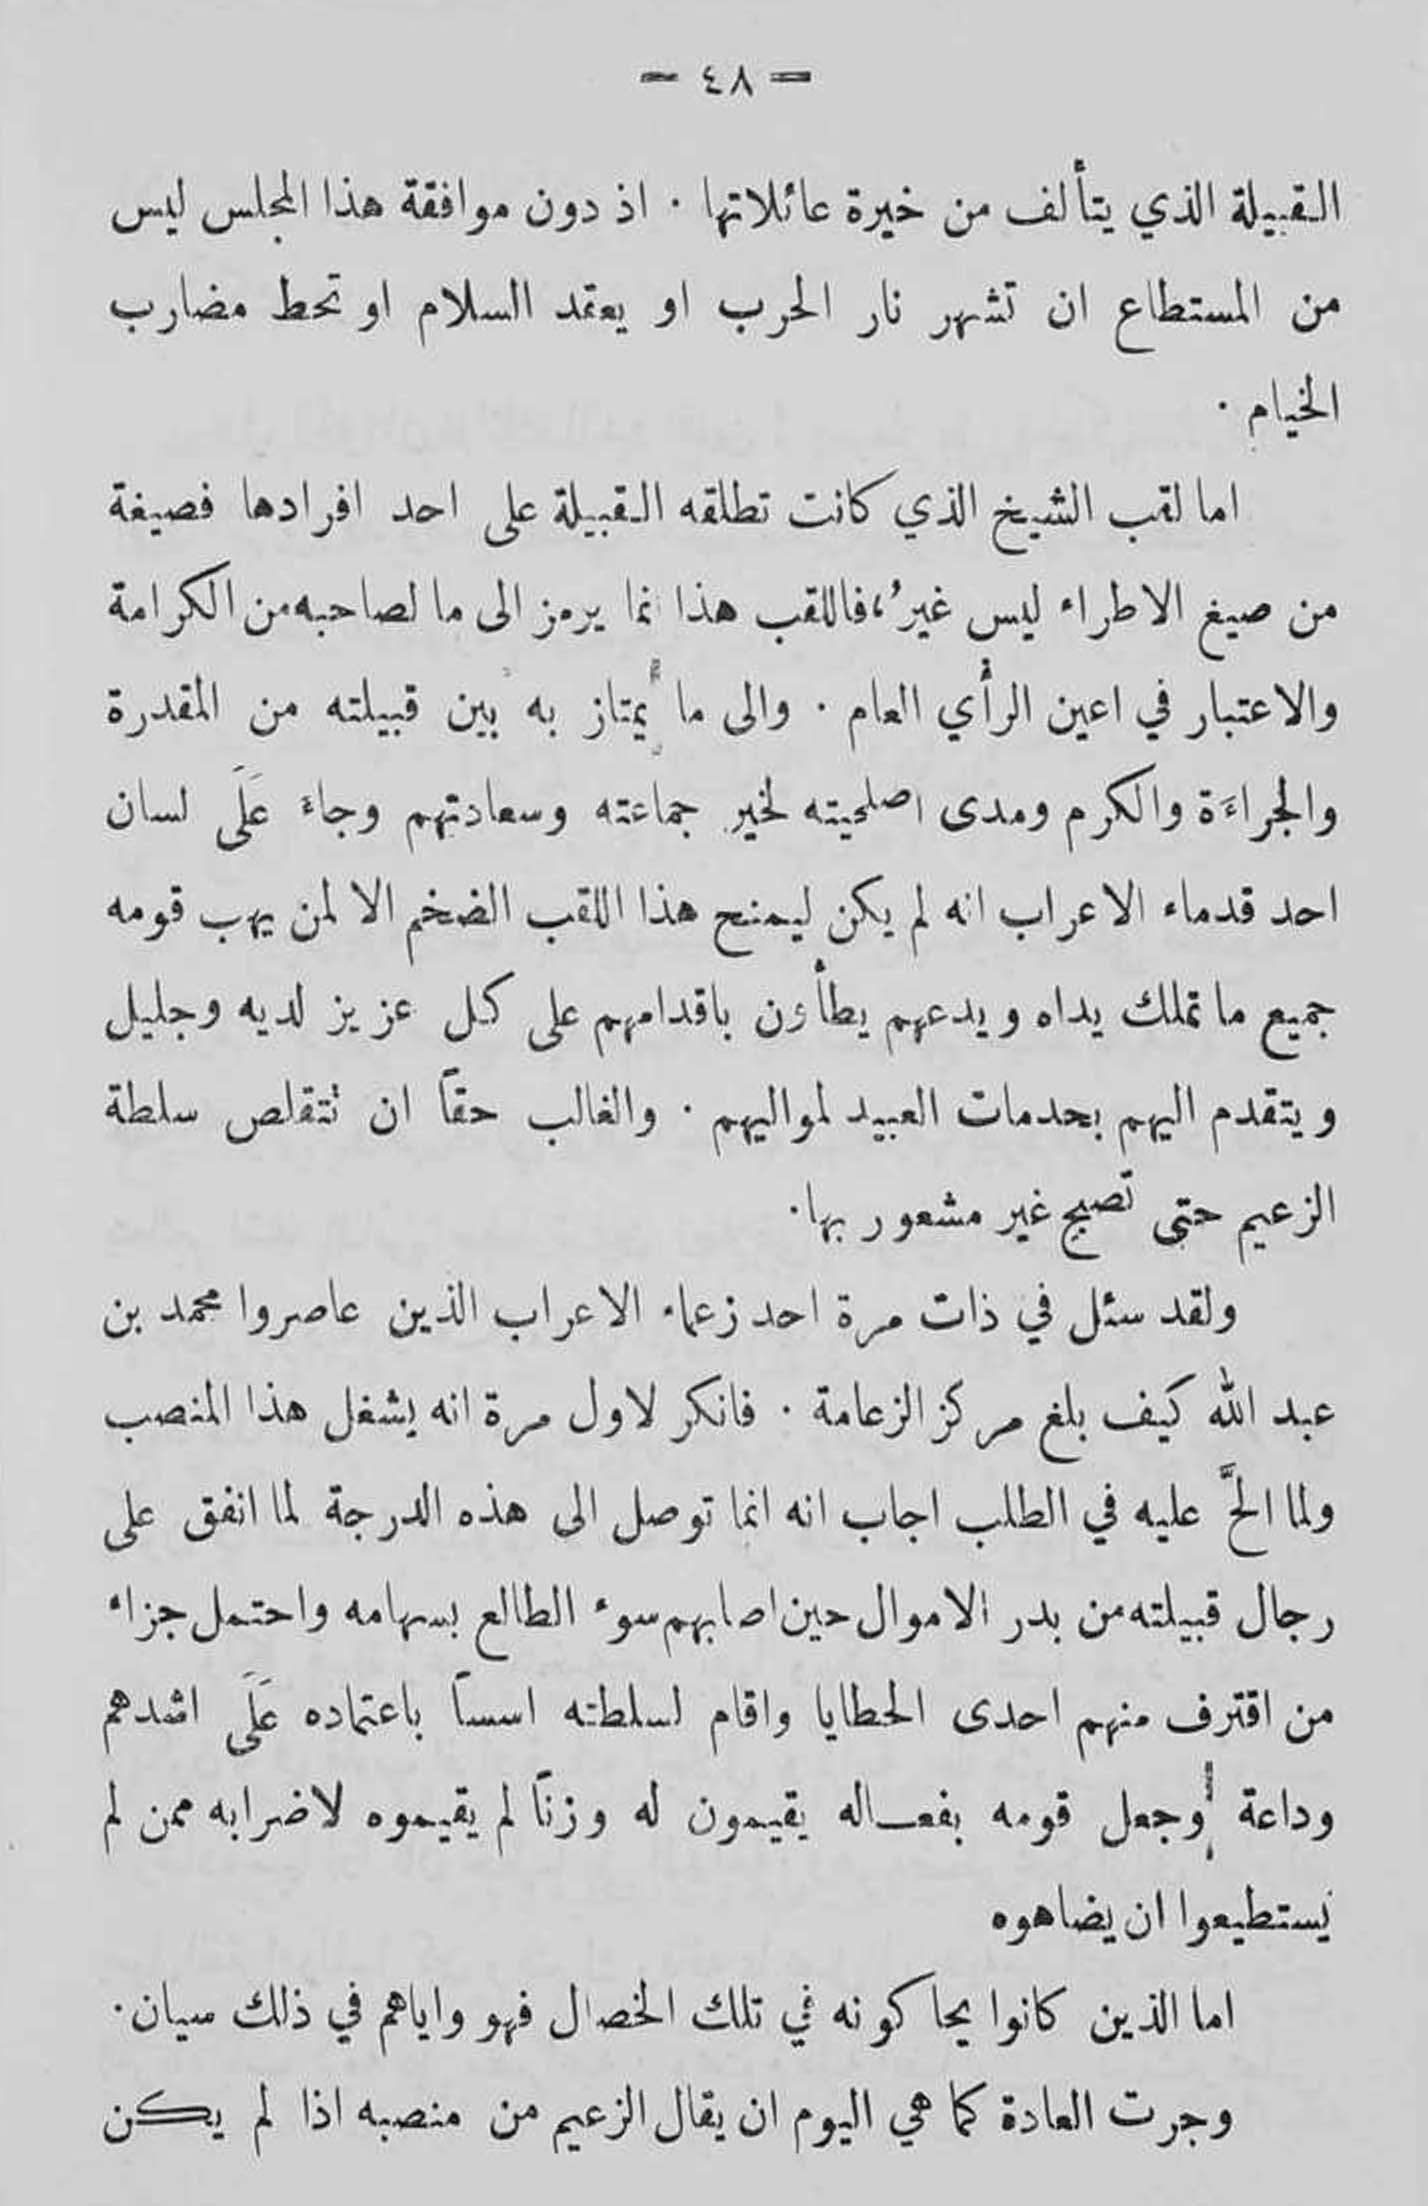 = ٤٨ =
القبيلة الذي يتألف من خيرة عائلاتها . اذ دون موافقة هذا المجلس ليس
من المستطاع ان تشهر نار الحرب او يعتمد السلام او تحط مضارب
الخيام .
اما لقب الشيخ الذي كانت تطلقه القبيلة على احد افرادها فصيغة
من صيغ الاطراء ليس غيرُ، فاللقب هذا انما يرمز الى ما لصاحبه من الكرامة
والاعتبار في اعين الرأي العام . والى ما يمتاز به بين قبيلته من المقدرة
والجراءَة والكرم ومدى اصلحيته لخير جماعته وسعادتهم وجاء عَلَى لسان
احد قدماء الاعراب انه لم يكن ليمنح هذا اللقب الضخم الا لمن يهب قومه
جميع ما تملك يداه ويدعهم يطأون باقدامهم على كل عزيز لديه وجليل
ويتقدم اليهم بخدمات العبيد لمواليهم . والغالب حقاً ان تتقلص سلطة
الزعيم حتى تصبح غير مشعور بها .
ولقد سئل في ذات مرة احد زعماء الاعراب الذين عاصروا محمد بن
عبد الله كيف بلغ مركز الزعامة . فانكر لاول مرة انه يشغل هذا المنصب
ولما الحَّ عليه في الطلب اجاب انه انما توصل الى هذه الدرجة لما انفق على
رجال قبيلته من بدر الاموال حين اصابهم سوء الطالع بسهامه واحتمل جزاء
من اقترف منهم احدى الخطايا واقام لسلطته اسساً باعتماده عَلَى اشدهم
وداعة وجعل قومه بفعاله يقيمون له وزناً لم يقيموه لاضرابه ممن لم
يستطيعوا ان يضاهوه
اما الذين كانوا يحاكونه في تلك الخصال فهو واياهم في ذلك سيان .
وجرت العادة كما هي اليوم ان يقال الزعيم من منصبه اذا لم يكن